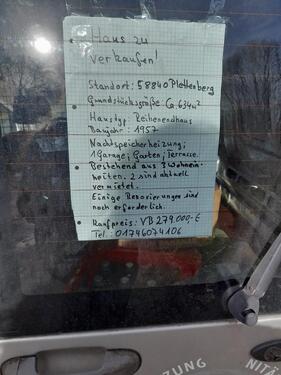 Haus zu
verkaufen!
Standort: 58840 Plettenberg
Grundstücksgröße: G. 634 m²
Haustyp: Reihenendhaus
Baujahr: 1957
Nachtspeicherheizung;
1 Garage; Garten; Terrasse.
Bestehend aus 3 Wohnein-
heiten. 2 sind aktuell
vermietet.
Einige Renovierungen sind
noch erforderlich.
Kaufpreis: VB 279.000.-€
Tel.: 01746074106
ZUNG
NITÄ